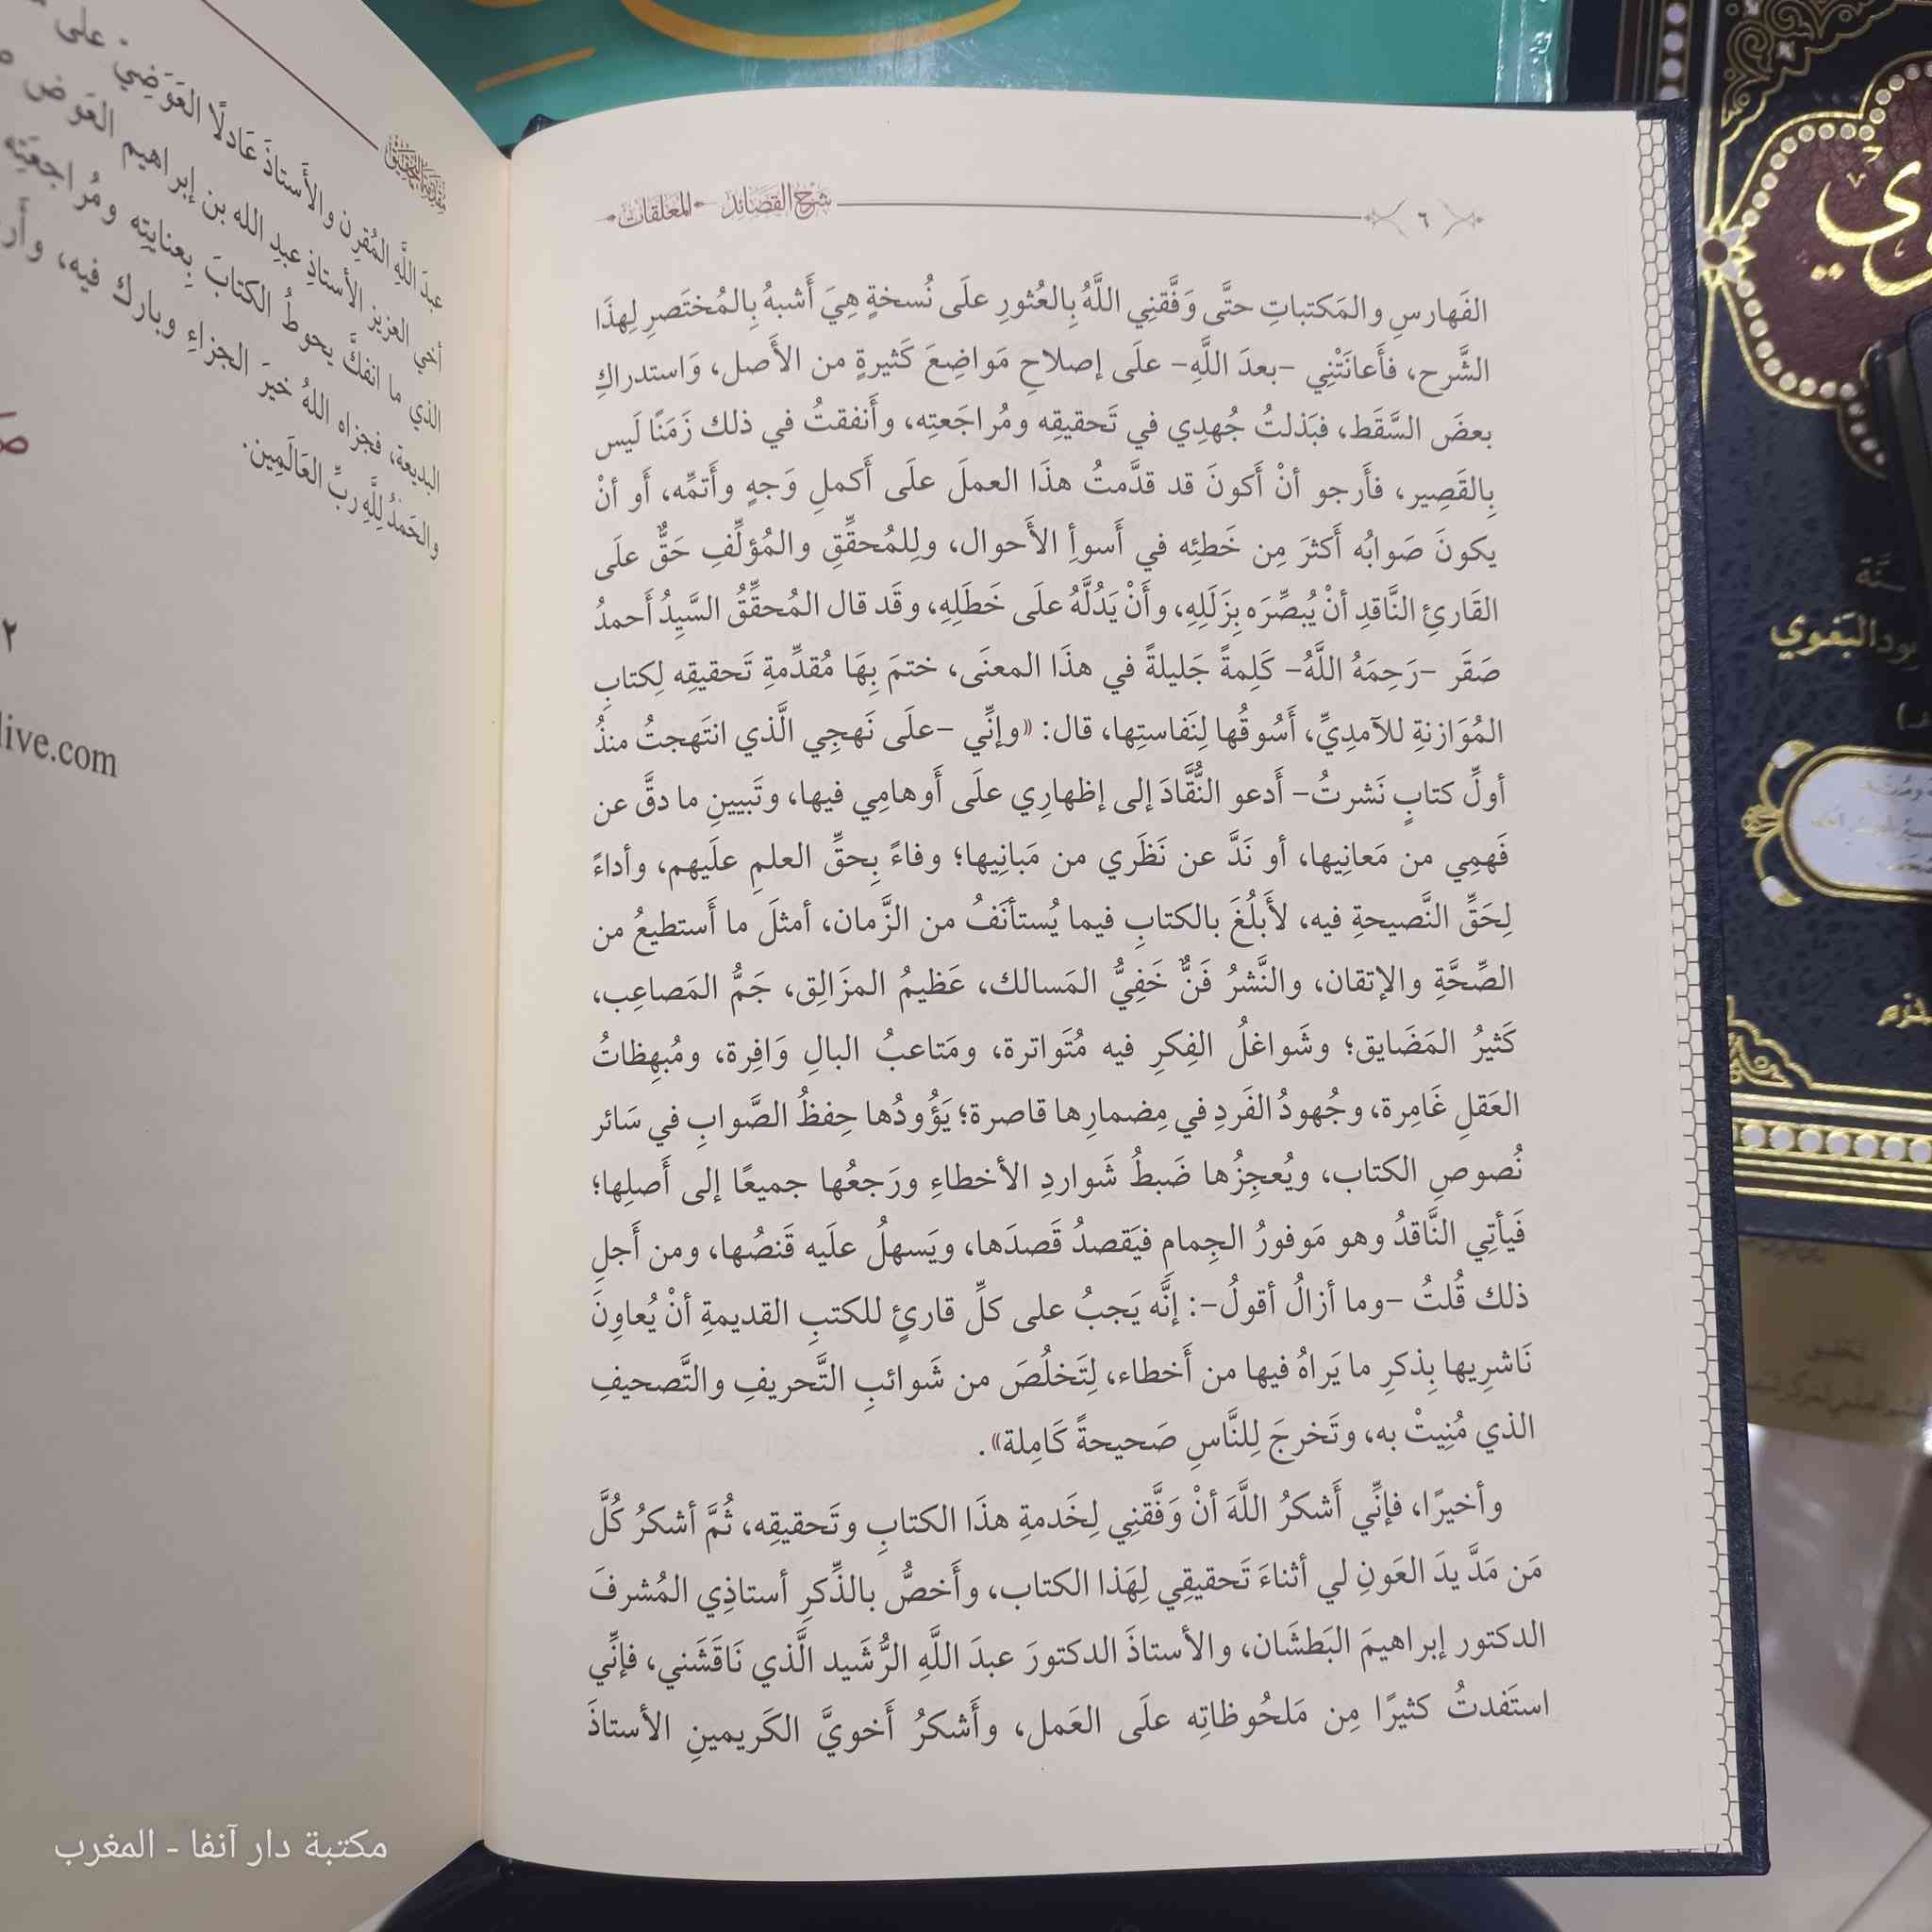 شرح القصائد المعلقات
٦
الفَهارسِ والمَكتباتِ حتَّى وَفَّقنِي اللَّهُ بِالعُثورِ علَى نُسخةٍ هِيَ أَشبهُ بِالمُختَصرِ لِهذَا
الشَّرح، فأَعانَتْنِي -بعدَ اللَّهِ- علَى إصلاحِ مَواضِعَ كَثيرةٍ من الأَصل، وَاستدراكِ
بعضَ السَّقَط، فبَذلتُ جُهدِي في تَحقيقِه ومُراجَعتِه، وأَنفقتُ في ذلك زَمَنًا لَيس
بِالقَصِير، فأَرجو أنْ أَكونَ قد قدَّمتُ هذَا العملَ علَى أَكملِ وَجهٍ وأَتمِّه، أَو أنْ
يكونَ صَوابُه أَكثرَ مِن خَطئِه في أَسوأِ الأَحوال، ولِلمُحقِّقِ والمُؤلِّفِ حَقٌّ علَى
القَارئِ النَّاقدِ أنْ يُبصِّرَه بِزَلَلِهِ، وأَنْ يَدُلَّهُ علَى خَطَلِهِ، وقَد قال المُحقِّقُ السَّيِدُ أَحمدُ
صَقَر -رَحِمَهُ اللَّهُ- كَلِمةً جَليلةً في هذَا المعنَى، ختمَ بِهَا مُقدِّمةِ تَحقيقِه لِكتابِ
المُوَازنةِ للآمدِيِّ، أَسُوقُها لِنَفاستِها، قال: «وإنِّي -علَى نَهجِي الَّذي انتَهجتُ منذُ
أولِّ كتابٍ نَشرتُ- أَدعو النُّقَّادَ إلى إظهارِي علَى أَوهامِي فيها، وتَبيينِ ما دقَّ عن
فَهمِي من مَعانِيها، أو نَدَّ عن نَظَري من مَبانِيها؛ وفاءً بِحقِّ العلمِ علَيهم، وأداءً
لِحَقِّ النَّصيحةِ فيه، لأَبلُغَ بالكتابِ فيما يُستأنَفُ من الزَّمان، أمثلَ ما أَستطيعُ من
الصِّحَّةِ والإتقان، والنَّشرُ فَنٌّ خَفِيُّ المَسالك، عَظيمُ المزَالِق، جَمُّ المَصاعِب،
كَثيرُ المَضَايق؛ وشَواغلُ الفِكرِ فيه مُتَواترة، ومَتاعبُ البالِ وَافِرة، ومُبهِظاتُ
العَقلِ غَامِرة، وجُهودُ الفَردِ في مِضمارِها قاصرة؛ يَؤُودُها حِفظُ الصَّوابِ في سَائر
نُصوصِ الكتاب، ويُعجِزُها ضَبطُ شَواردِ الأخطاءِ ورَجعُها جميعًا إلى أَصلِها؛
فَيأتِي النَّاقدُ وهو مَوفورُ الجِمامِ فيَقصدُ قَصدَها، ويَسهلُ علَيه قَنصُها، ومن أَجلِ
ذلك قُلتُ -وما أزالُ أقولُ-: إنَّه يَجبُ على كلِّ قارئٍ للكتبِ القديمةِ أنْ يُعاوِنَ
نَاشرِيها بِذكرِ ما يَراهُ فيها من أَخطاء، لِتَخلُصَ من شَوائبِ التَّحريفِ والتَّصحيفِ
الذي مُنِيتْ به، وتَخرجَ لِلنَّاسِ صَحيحةً كَامِلة».
وأخيرًا، فإنِّي أَشكرُ اللَّهَ أنْ وَفَّقنِي لِخَدمةِ هذَا الكتابِ وتَحقيقِه، ثُمَّ أشكرُ كُلَّ
مَن مَدَّ يدَ العَونِ لي أثناءَ تَحقيقِي لِهَذا الكتاب، وأَخصُّ بالذِّكرِ أستاذِي المُشرفَ
الدكتور إبراهيمَ البَطشَان، والأستاذَ الدكتورَ عبدَ اللَّهِ الرُّشَيد الَّذي نَاقَشَني، فإنِّي
استَفدتُ كثيرًا مِن مَلحُوظاتِه علَى العَمل، وأَشكرُ أَخويَّ الكَريمينِ الأستاذَ
مقدمة التحقيق
عبدَ اللَّهِ المُقرِن والأَستاذَ عَادلًا العَوَضِيَ على
أخي العزيز الأستاذِ عبدِ الله بن إبراهيم العَوض
الذي ما انفكَّ يحوطُ الكتابَ بِعنايتِه ومُراجعتِه
البديعة، فجزاه اللهُ خيرَ الجزاءِ وبارك فيه،
والحَمدُ لِلَّهِ ربِّ العَالَمِين.
live.com
بغوي
مكتبة دار آنفا - المغرب